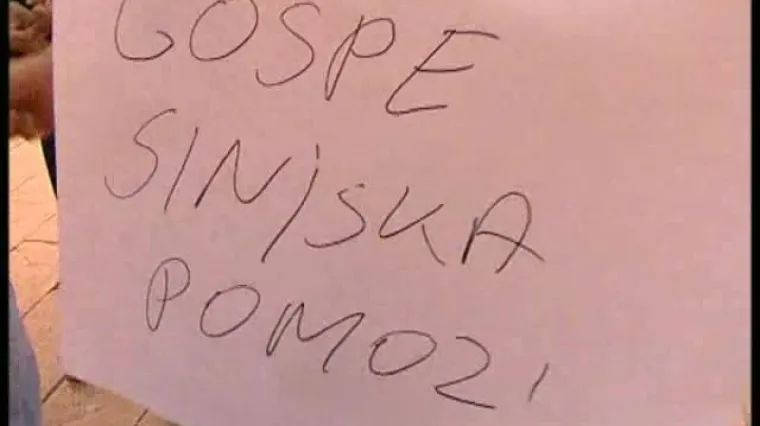 GOSPE
SINJSKA
POMOZI